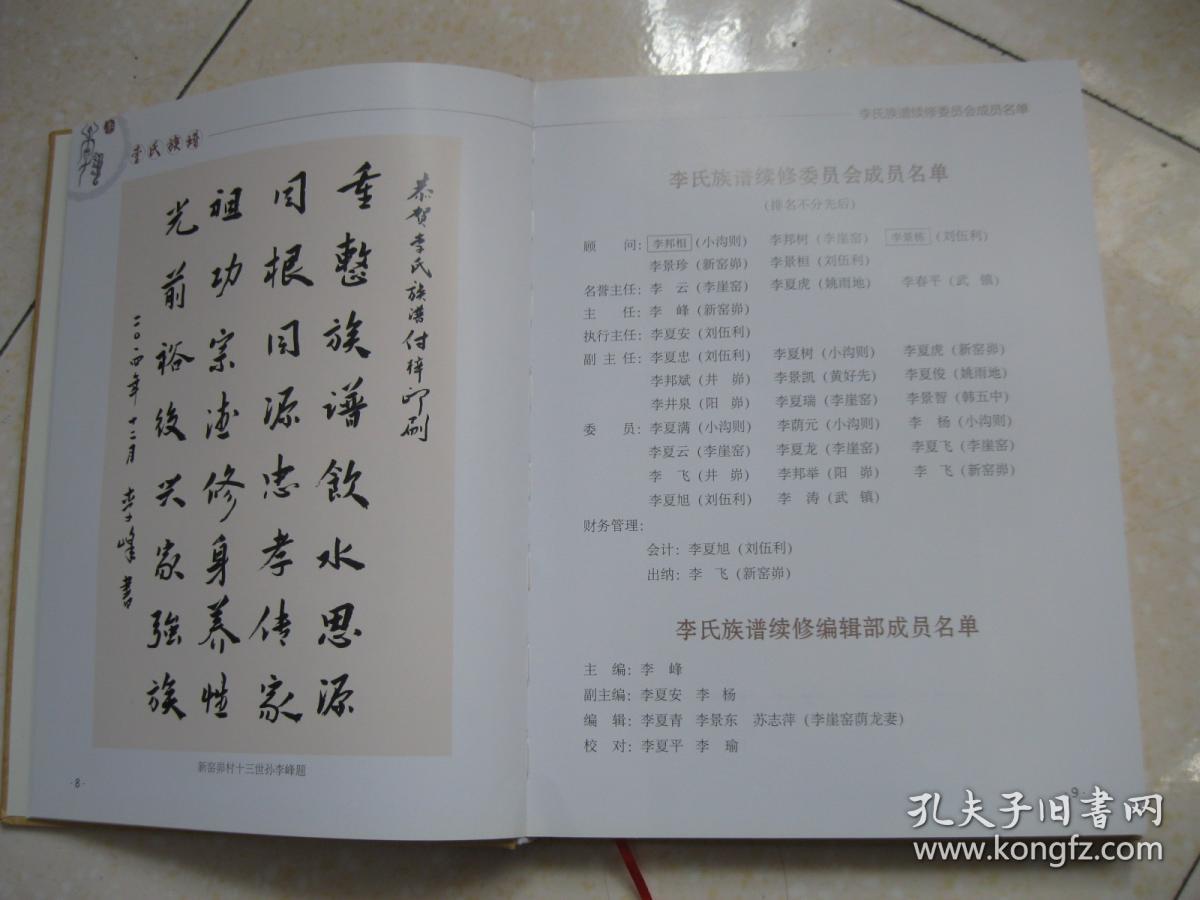 李氏族谱
恭贺李氏族谱付梓印刷
重整族谱飲水思源
同根同源忠孝传家
祖功宗德修身养性
光前裕後兴家强族
二〇一四年十二月 李峰書
新窑峁村十三世孙李峰题
·8·
李氏族谱续修委员会成员名单
李氏族谱续修委员会成员名单
(排名不分先后)
顾 问：李邦相(小沟则) 李邦树(李崖窑) 李景栋(刘伍利)
李景珍(新窑峁) 李景桓(刘伍利)
名誉主任：李 云(李崖窑) 李夏虎(姚雨地) 李春平(武 镇)
主 任：李 峰(新窑峁)
执行主任：李夏安(刘伍利)
副 主 任：李夏忠(刘伍利) 李夏树(小沟则) 李夏虎(新窑峁)
李邦斌(井 峁) 李景凯(黄好先) 李夏俊(姚雨地)
李井泉(阳 峁) 李夏瑞(李崖窑) 李景智(韩五中)
委 员：李夏满(小沟则) 李荫元(小沟则) 李 杨(小沟则)
李夏云(李崖窑) 李夏龙(李崖窑) 李夏飞(李崖窑)
李 飞(井 峁) 李邦举(阳 峁) 李 飞(新窑峁)
李夏旭(刘伍利) 李 涛(武 镇)
财务管理：
会计：李夏旭(刘伍利)
出纳：李 飞(新窑峁)
李氏族谱续修编辑部成员名单
主 编：李 峰
副主编：李夏安 李 杨
编 辑：李夏青 李景东 苏志萍(李崖窑荫龙妻)
校 对：李夏平 李 瑜
9·
孔夫子旧书网
www.kongfz.com